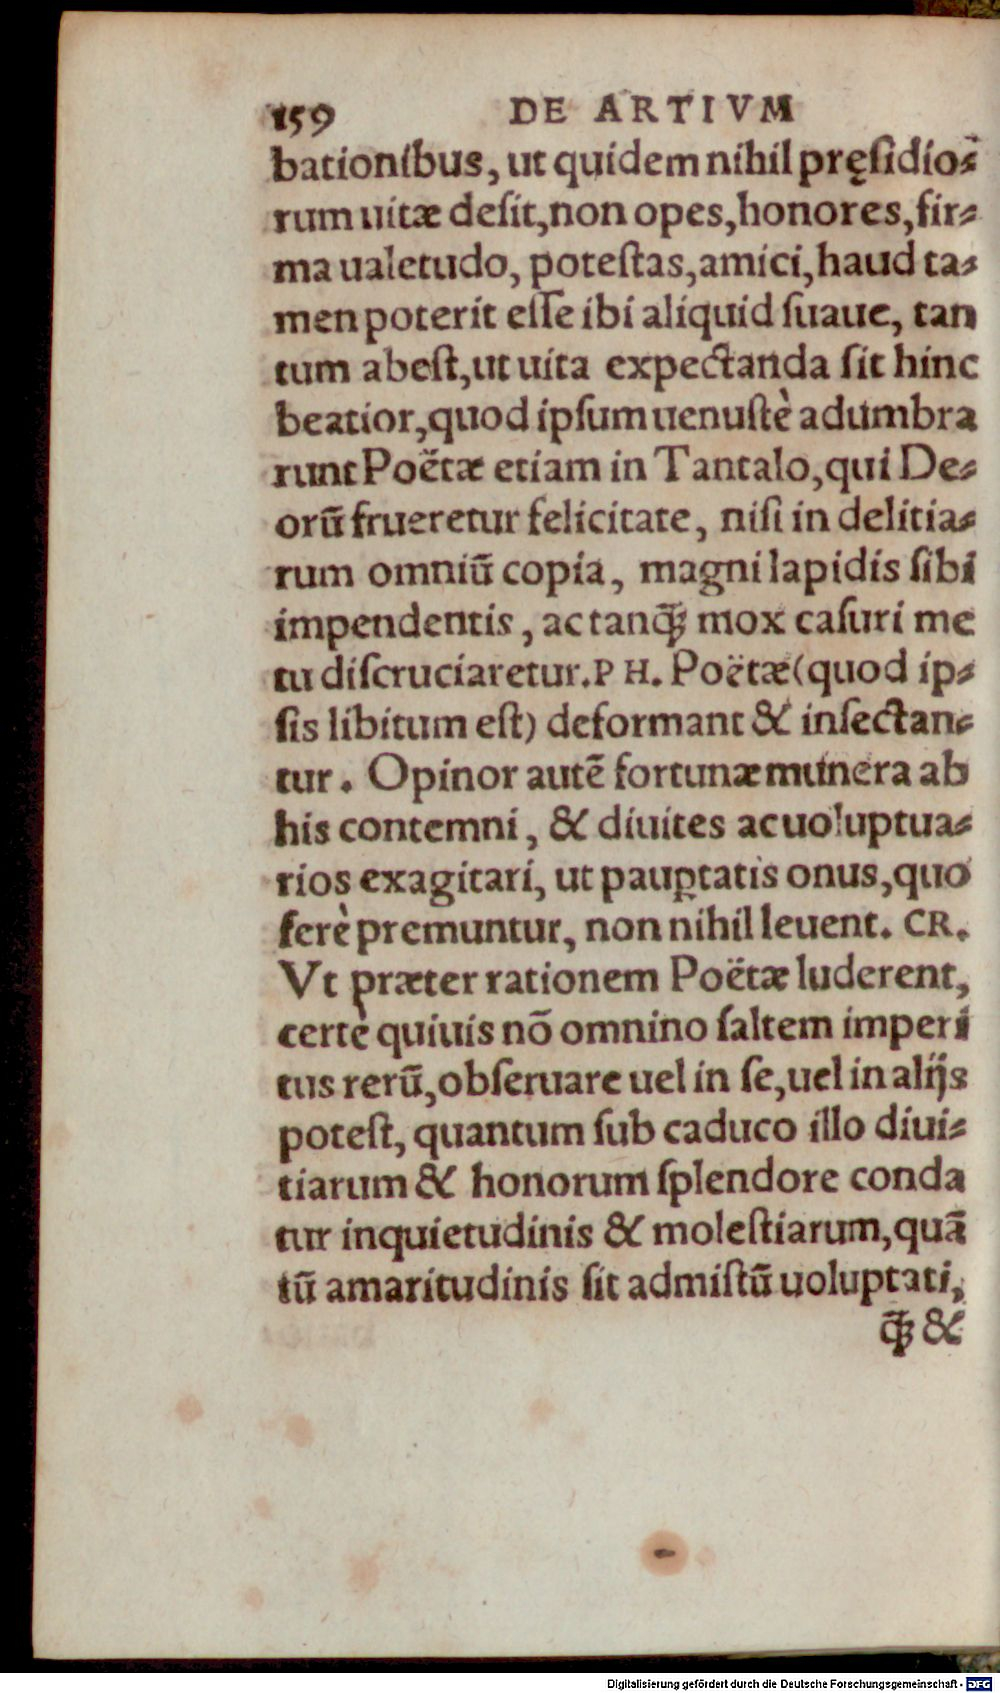 159 DE ARTIVM
bationibus, ut quidem nihil pręſidio-
rum uitæ deſit,non opes,honores,fir-
ma ualetudo, poteſtas,amici,haud ta-
men poterit eſſe ibi aliquid ſuaue, tan
tum abeſt,ut uita expectanda ſit hinc
beatior,quod ipſum uenuſtè adumbra
runt Poëtæ etiam in Tantalo,qui De-
orū frueretur felicitate, niſi in delitia-
rum omniū copia, magni lapidis ſibi
impendentis, ac tanq̃ꝫ mox caſuri me
tu diſcruciaretur.PH. Poëtæ(quod ip-
ſis libitum eſt) deformant & inſectan-
tur. Opinor autē fortunæ munera ab
his contemni, & diuites ac uoluptua-
rios exagitari, ut paup̱tatis onus,quo
ferè premuntur, non nihil leuent. CR.
Vt præter rationem Poëtæ luderent,
certè quiuis nō omnino ſaltem imperi
tus rerū,obſeruare uel in ſe,uel in alijs
poteſt, quantum ſub caduco illo diui-
tiarum & honorum ſplendore conda
tur inquietudinis & moleſtiarum,quā
tū amaritudinis ſit admiſtū uoluptati,
q̃ꝫ &
Digitalisierung gefördert durch die Deutsche Forschungsgemeinschaft - DFG